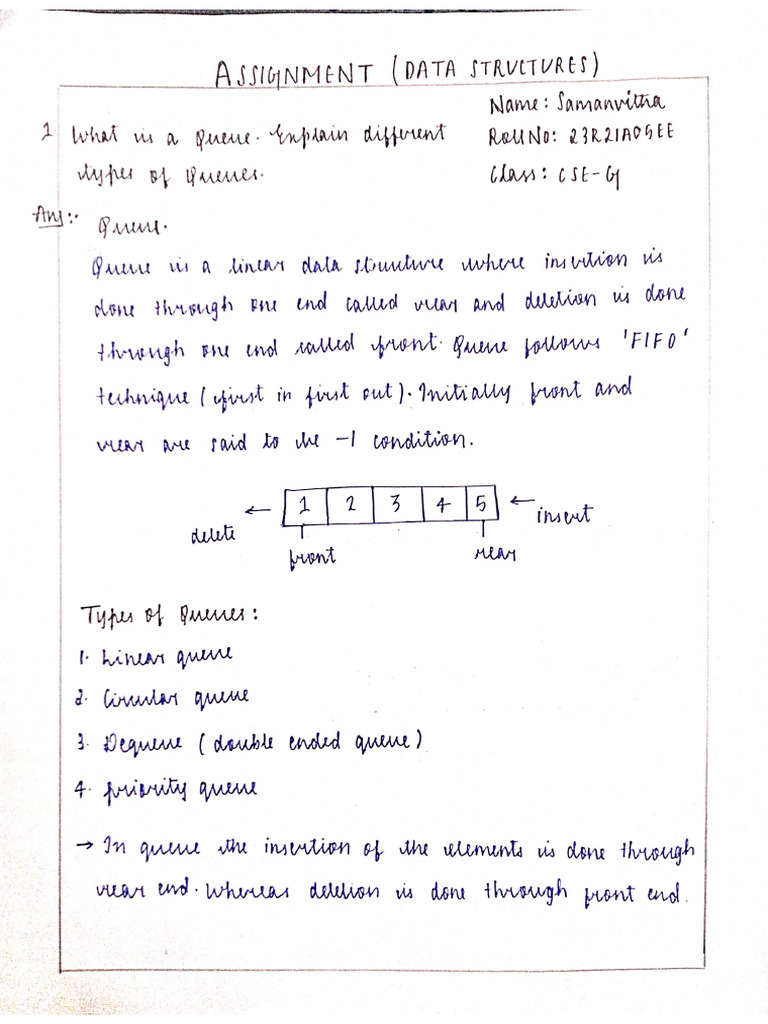 ASSIGNMENT (DATA STRUCTURES)
Name: Samanvitha
1 What is a Queue. Explain different
Roll No: 23R21A05EE
types of Queues.
Class: CSE-G
Ans:-
Queue.
Queue is a linear data structure where insertion is
done through one end called rear and deletion is done
through one end called front. Queue follows 'FIFO'
technique (first in first out). Initially front and
rear are said to the -1 condition.
1 2 3 4 5
delete
insert
front
rear
Types of Queues:
1. Linear queue
2. Circular queue
3. Dequeue (double ended queue)
4. priority queue
→ In queue the insertion of the elements is done through
rear end. Whereas deletion is done through front end.